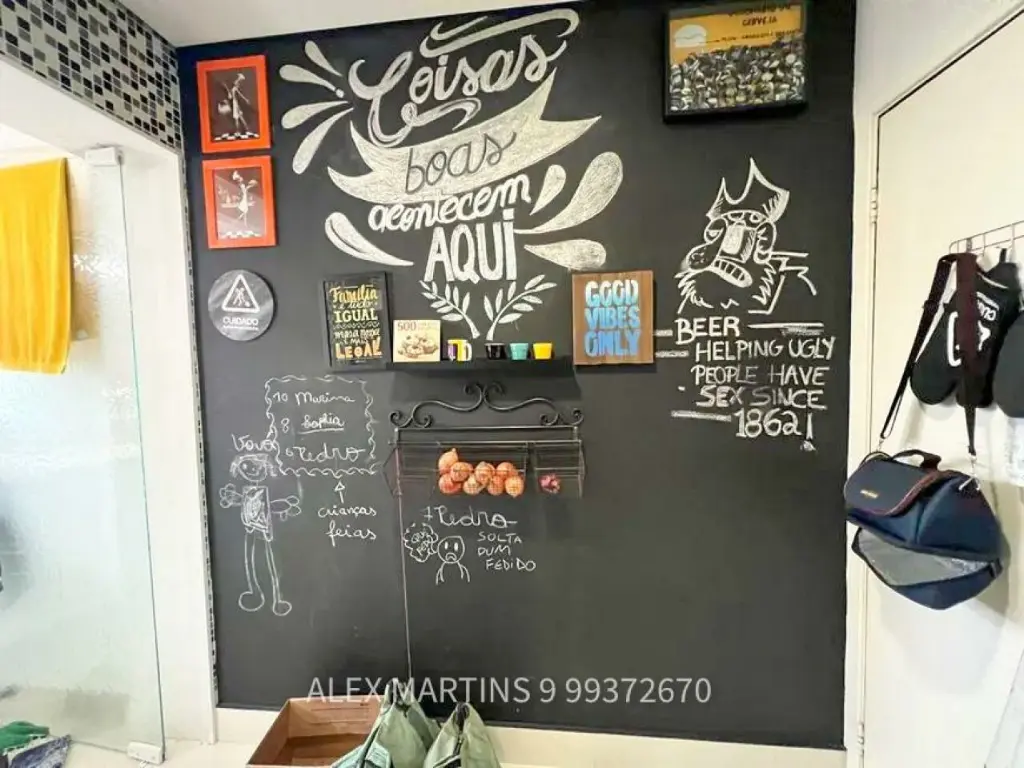 Coisas
boas
acontecem
AQUI
CERVEJA
CUIDADO
Família
é tudo
IGUAL
LEGAL
500
GOOD
VIBES
ONLY
BEER
HELPING UGLY
PEOPLE HAVE
SEX SINCE
1862!
10 Marina
8 Sophia
Pedro
Vovó
crianças
feias
Pedro
SOLTA
PUM
FEDIDO
ALEX MARTINS 9 99372670